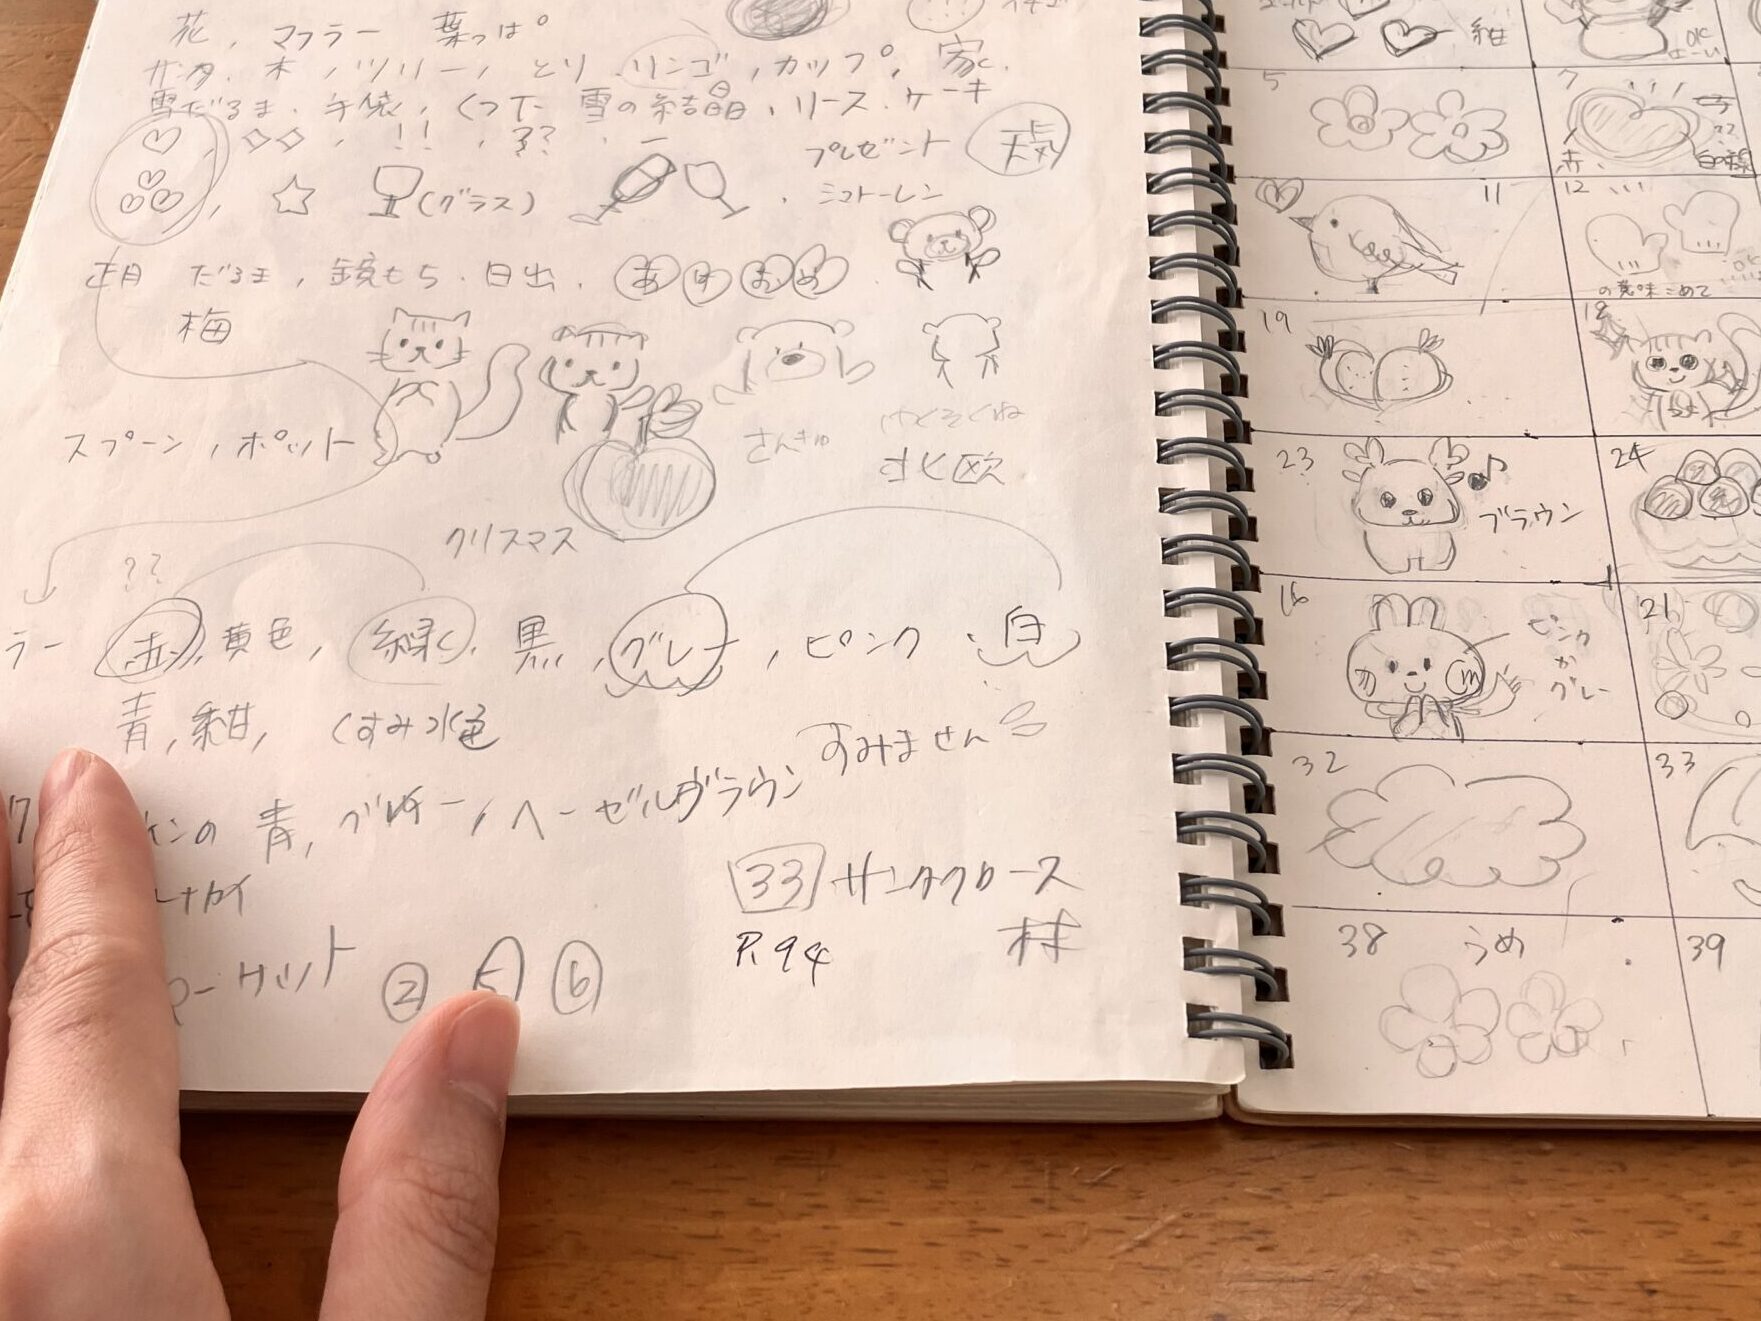 花, マフラー 葉っぱ
サンタ, 木, ツリー, とり, リンゴ, カップ, 家,
雪だるま, 手袋, くつ下 雪の結晶, リース, ケーキ
!! , ??
プレゼント 天気
(グラス)
シュトーレン
正月 だるま, 鏡もち, 日出, あけおめ
梅
スプーン, ポット
さんきゅ
北欧
クリスマス
??
ラー 赤, 黄色, 緑, 黒, グレー, ピンク, 白
青, 紺, くすみ水色
すみません
ンの青, グレー, ヘーゼルブラウン
33 サンタクロース
村
P.94
ーナカイ
ーケット ② 5 ⑥
紺
OK
5
7
赤,
11
12
の意味こめて
19
18
23
ブラウン
24
16
ピンク
か
グレー
21
32
33
38 うめ
39